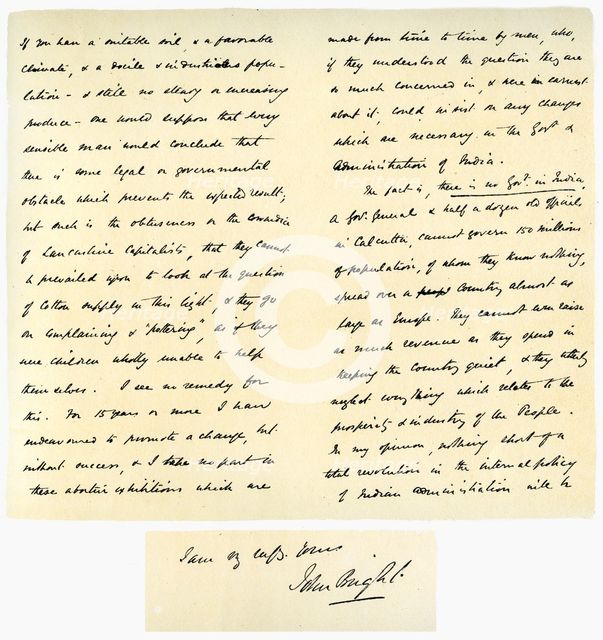 If you have a suitable soil, & a favorable
climate, & a docile & industrious popu-
lation - & still no steady or increasing
produce - one would suppose that every
sensible man would conclude that
there is some legal or governmental
obstacle which prevents the expected result;
but such is the obtuseness or the cowardice
of Lancashire Capitalists, that they cannot
be prevailed upon to look at the question
of Cotton supply in this light, & they go
on complaining & "pottering", as if they
were children wholly unable to help
themselves. I see no remedy for
this. For 15 years or more I have
endeavoured to promote a change, but
without success, & I take no part in
these abortive exhibitions which are
made from time to time by men, who,
if they understood the question they are
so much concerned in, & were in earnest
about it, could insist on any changes
which are necessary in the Govt &
Administration of India.
The fact is, there is no Govt in India,
A Gov. General & half a dozen old officials
in Calcutta, cannot govern 150 millions
of population, of whom they know nothing,
spread over a country almost as
large as Europe. They cannot even raise
as much revenue as they spend in
keeping the country quiet, & they utterly
neglect everything which relates to the
prosperity & industry of the People.
In my opinion, nothing short of a
total revolution in the internal policy
of Indian administration will be
I am
Yours
John Bright.